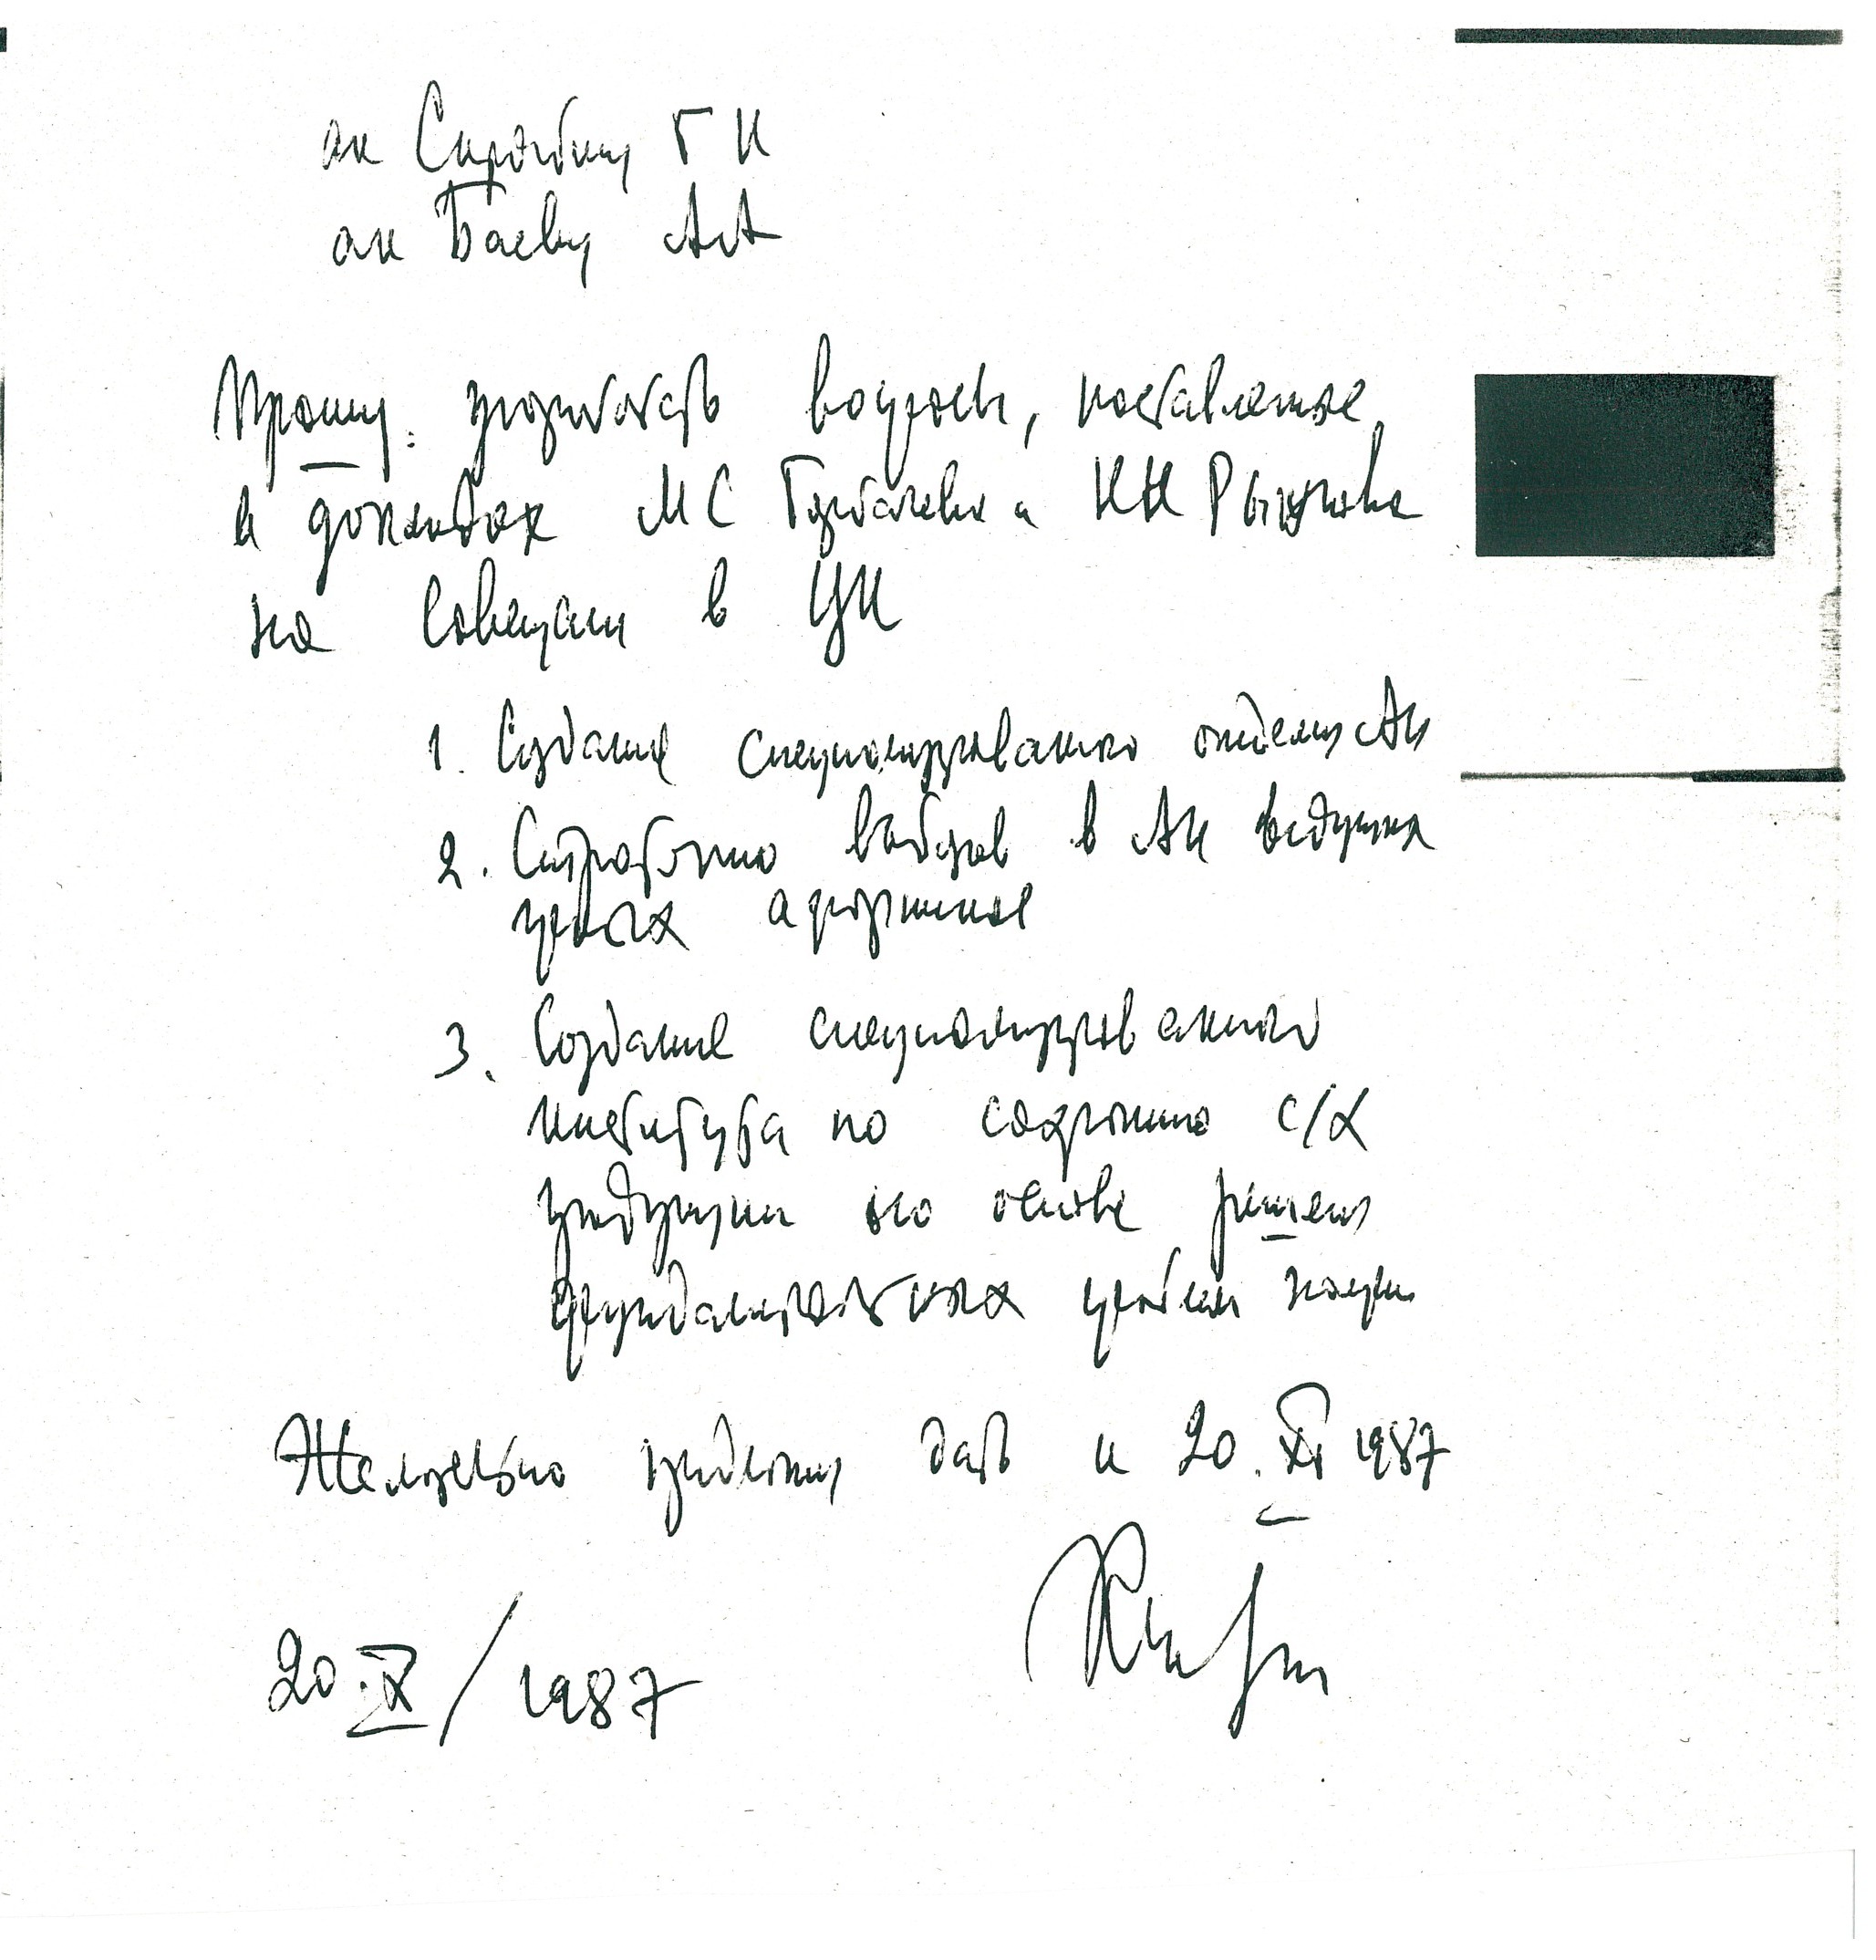 ак Скрябину Г К
ак Баеву АА
Прошу: проработать вопросы, поставленные
в докладах МС Горбачева и НИ Рыжкова
на совещании в ЦК
1. Создание специализированного отделения АН
2. выборов в АН ведущих
3. Создание специализированного
института по сохранению с/х
продукции на основе решения
фундаментальных проблем науки
Желательно предложения дать к 20. XI 1987
20 IX / 1987